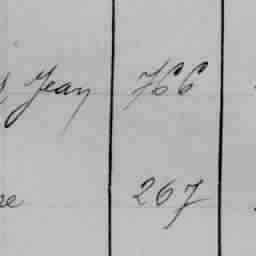 Jean 766
267